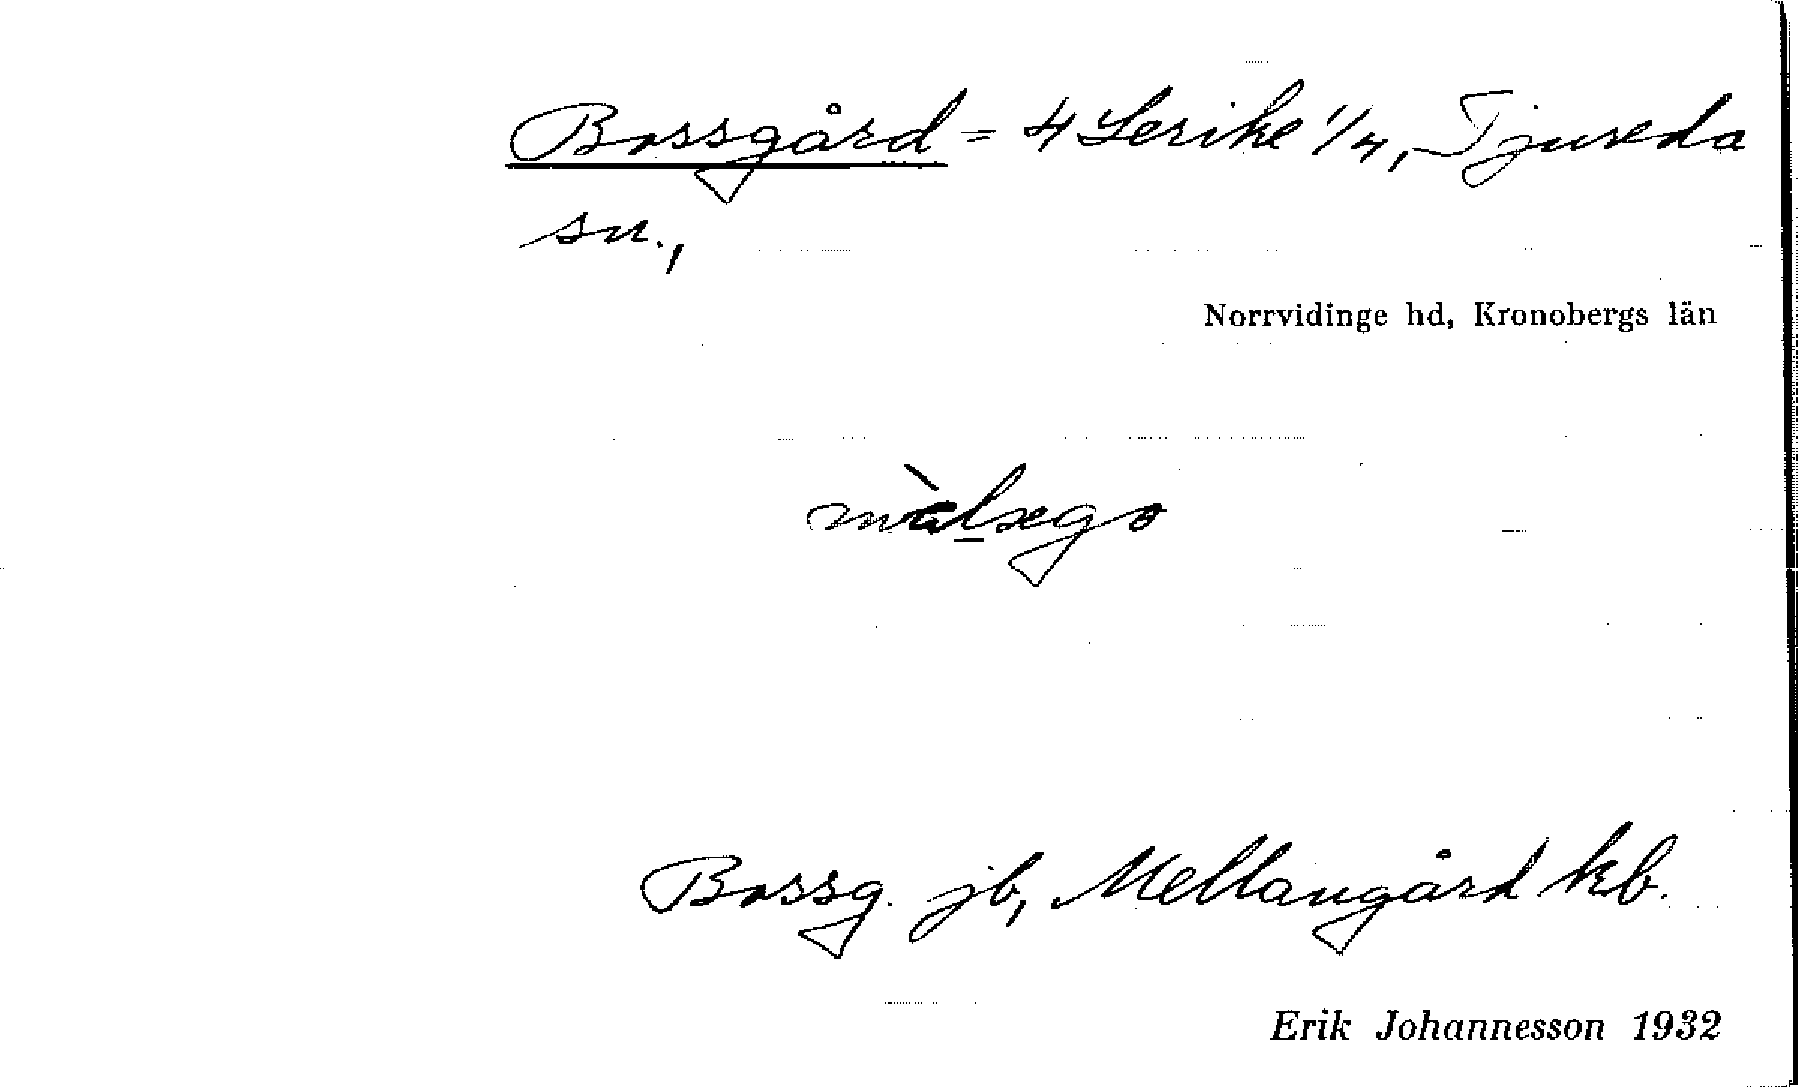 Bossgård = 4 Lerike 1/4, Tjureda
sn.,
Norrvidinge hd, Kronobergs län
Bossg. jb, Mellangård kb.
Erik Johannesson 1932